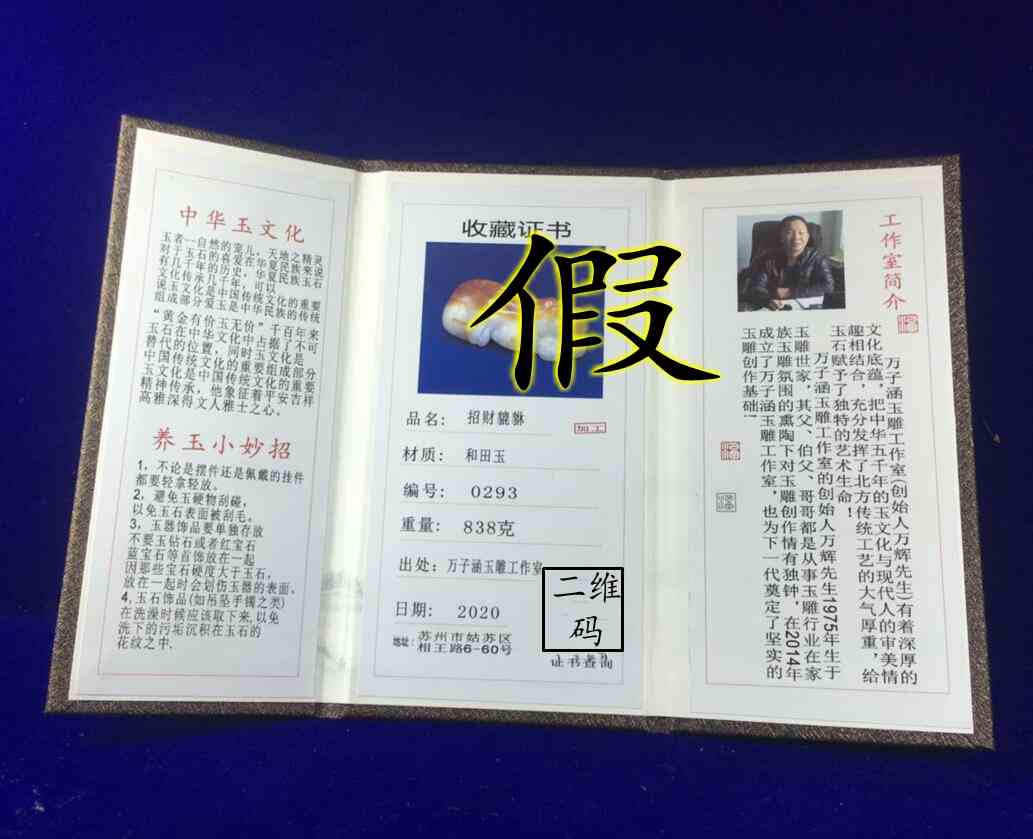 中华玉文化
玉者—自然的宠儿，天地之精灵
对于玉石的喜爱在华夏民族来说
有几千年的历史，华夏民族玉石
文化传承几千年，可以
说玉文化是中国传统文化的重要
组成部分爱玉是中华民族的传统
“黄金有价玉无价”千百年来
玉石在中华文化中占据了不可
替代的位置，同时玉文化是
中国传统文化的重要组成部分
玉文化是中国传统文化的重要
精神传承，他象征着平安吉祥
高雅深得文人雅士之心。
养玉小妙招
1，不论是摆件还是佩戴的挂件
都要轻拿轻放。
2，避免玉硬物刮碰，
以免玉石表面被刮毛。
3，玉器饰品要单独存放
不要玉钻石或者红宝石
蓝宝石等首饰放在一起
因那些宝石硬度大于玉石，
放在一起时会划伤玉器的表面。
4，玉石饰品(如吊坠手镯之类)
在洗澡时候应该取下来，以免
洗下的污垢沉积在玉石的
花纹之中.
收藏证书
假
品名： 招财貔貅
加工
材质： 和田玉
编号： 0293
重量： 838克
出处：万子涵玉雕工作室
日期： 2020
地址：苏州市姑苏区
相王路6-60号
二维
码
证书查询
工作室简介
万子涵玉雕工作室(创始人万辉先生)有着深厚的
文化底蕴，把中华五千年的玉文化与现代人的审美情
趣相结合，充分发挥了北方传统工艺的大气厚重，给
玉石赋予了独特的艺术生命！
万子涵玉雕工作室的创始人万辉先生1975年生于
玉雕世家，其父、伯父、哥哥都是从事玉雕行业在家
族玉雕氛围的熏陶下对玉雕创作情有独钟，在2014年
成立了万子涵玉雕工作室，也为下一代奠定了坚实的
玉雕创作基础！